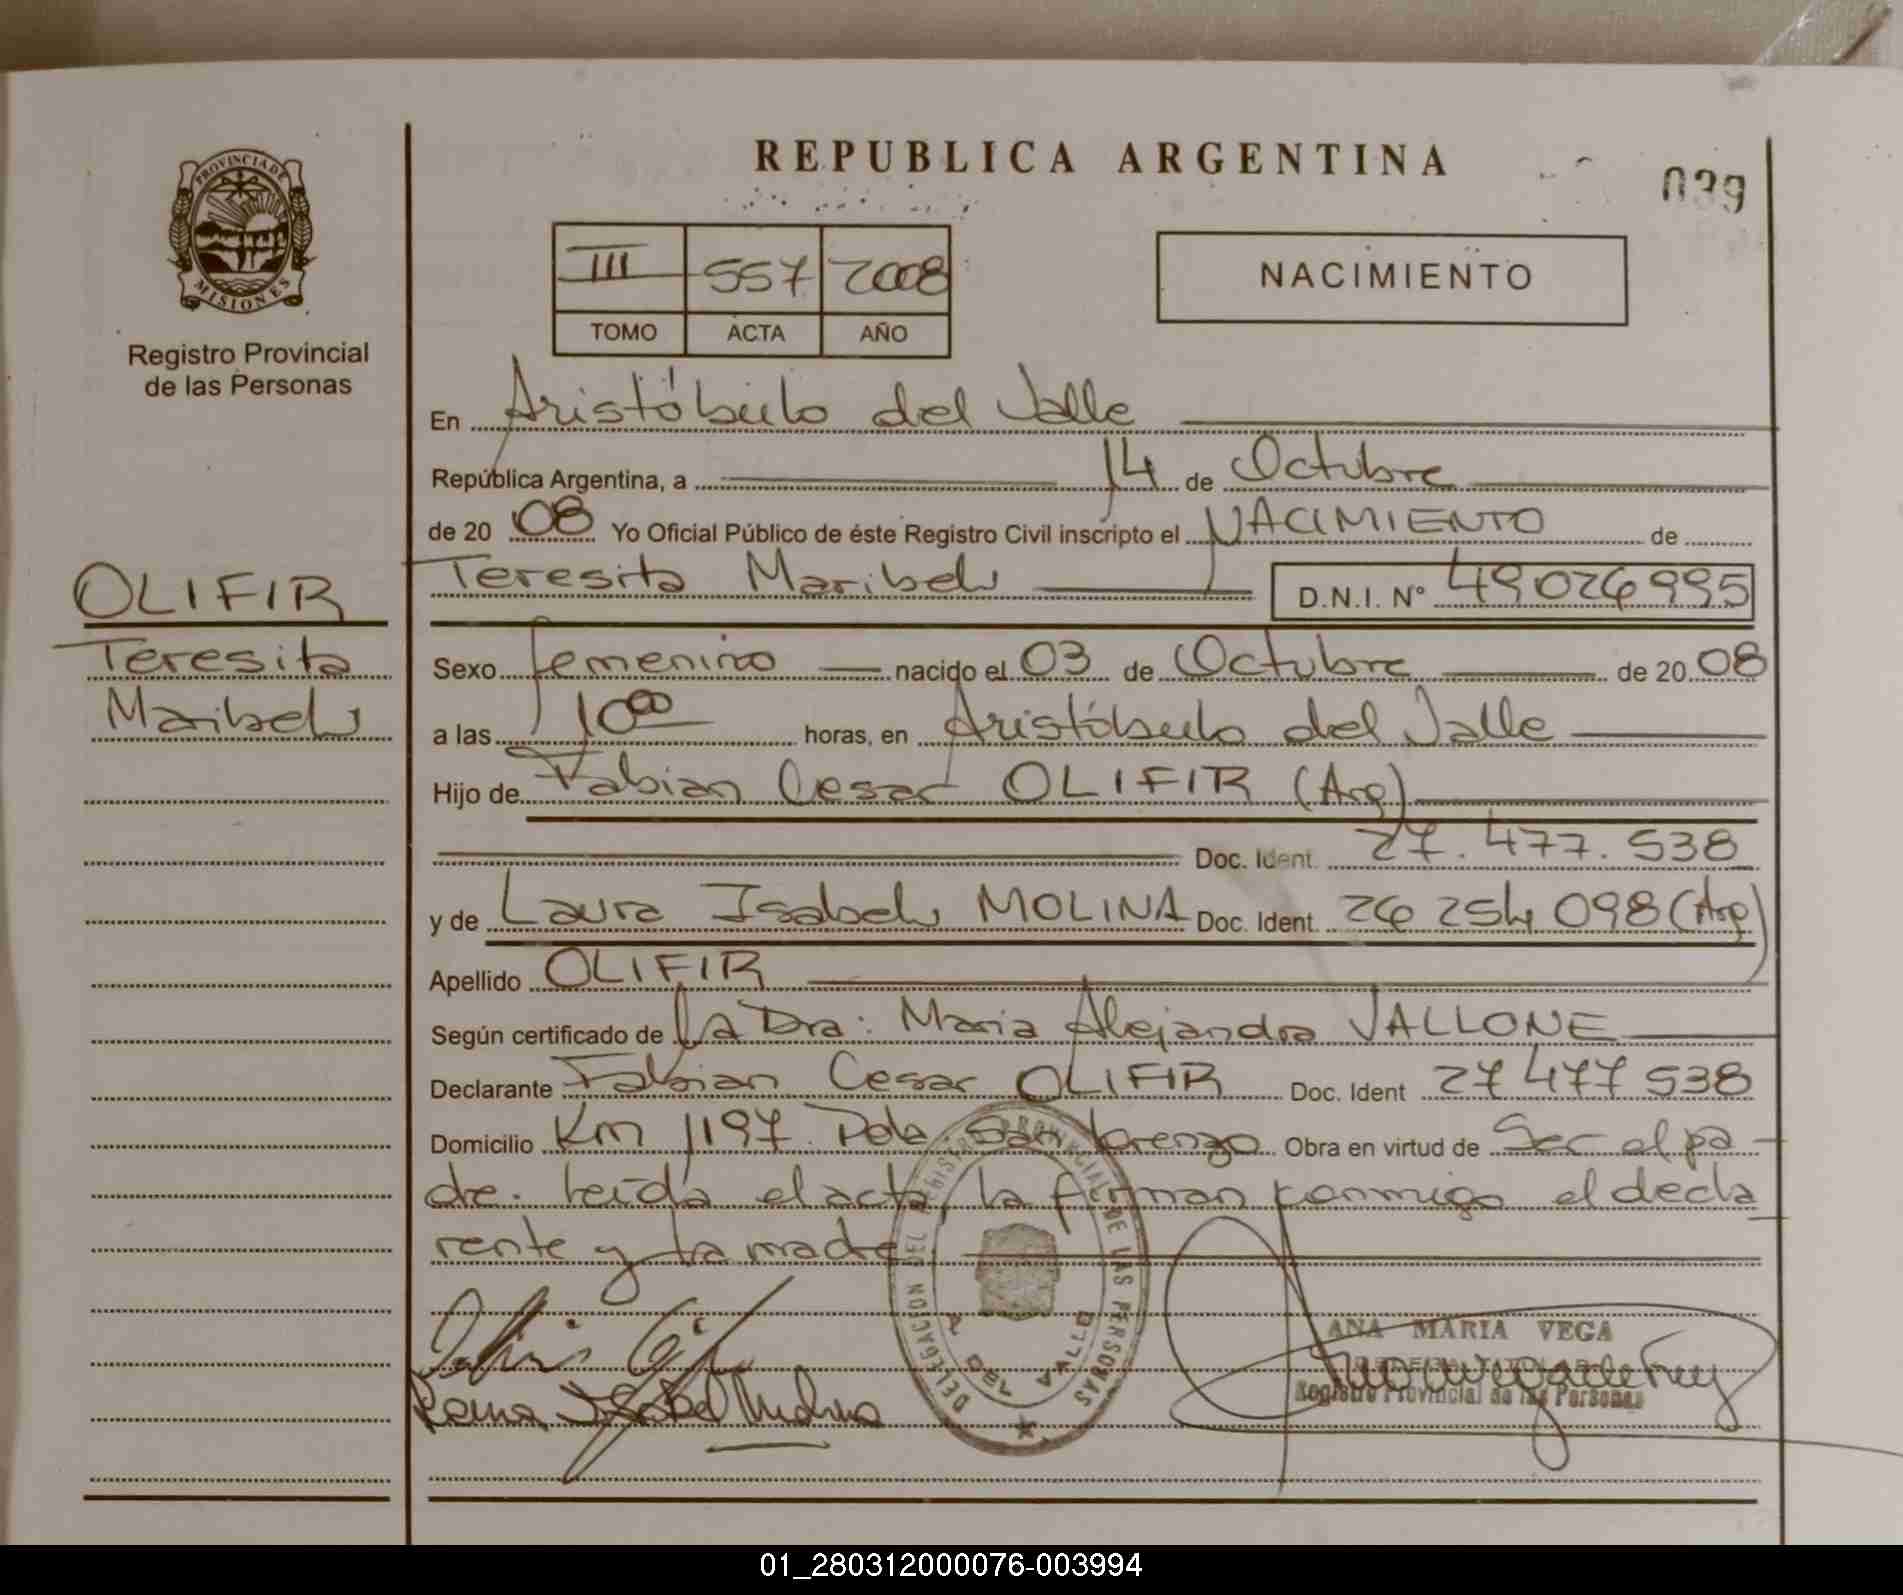 REPUBLICA ARGENTINA
039
PROVINCIA DE MISIONES
Registro Provincial
de las Personas
III 557 2008
TOMO ACTA AÑO
NACIMIENTO
En Aristóbulo del Valle
República Argentina, a 14 de Octubre
de 20 08 Yo Oficial Público de éste Registro Civil inscripto el NACIMIENTO de
Teresita Maribel D.N.I. N° 49026995
OLIFIR
Teresita
Maribel
Sexo femenino nacido el 03 de Octubre de 20 08
a las 10 00 horas, en Aristóbulo del Valle
Hijo de Fabian Cesar OLIFIR (Arg)
Doc. Ident. 27.477.538
y de Laura Isabel MOLINA Doc. Ident. 26 254 098 (Arg)
Apellido OLIFIR
Según certificado de La Dra: Maria Alejandra VALLONE
Declarante Fabian Cesar OLIFIR Doc. Ident 27 477 538
Domicilio Km 1197 Pdo San Lorenzo Obra en virtud de Ser el pa-
dre. leída el acta, la firman conmigo el decla
rante y la madre
DELEGACION DEL REGISTRO PROVINCIAL DE LAS PERSONAS
A DEL VALLE
ANA MARIA VEGA
Registro Provincial de las Personas
Isabel Molina
01_280312000076-003994